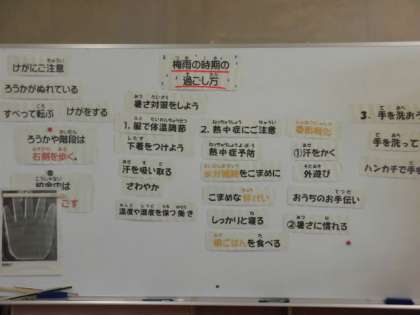 梅雨の時期の
過ごし方
けがにご注意
ろうかがぬれている
すべって転ぶ
けがをする
ろうかや階段は
右側を歩く。
暑さ対策をしよう
1. 服で体温調節
下着をつけよう
汗を吸い取る
さわやか
温度や湿度を保つ働き
2. 熱中症にご注意
熱中症予防
水分補給をこまめに
こまめな
しっかりと寝る
朝ごはんを食べる
①汗をかく
外遊び
おうちのお手伝い
②暑さに慣れる
3. 手を洗おう
手を洗って
ハンカチで手を